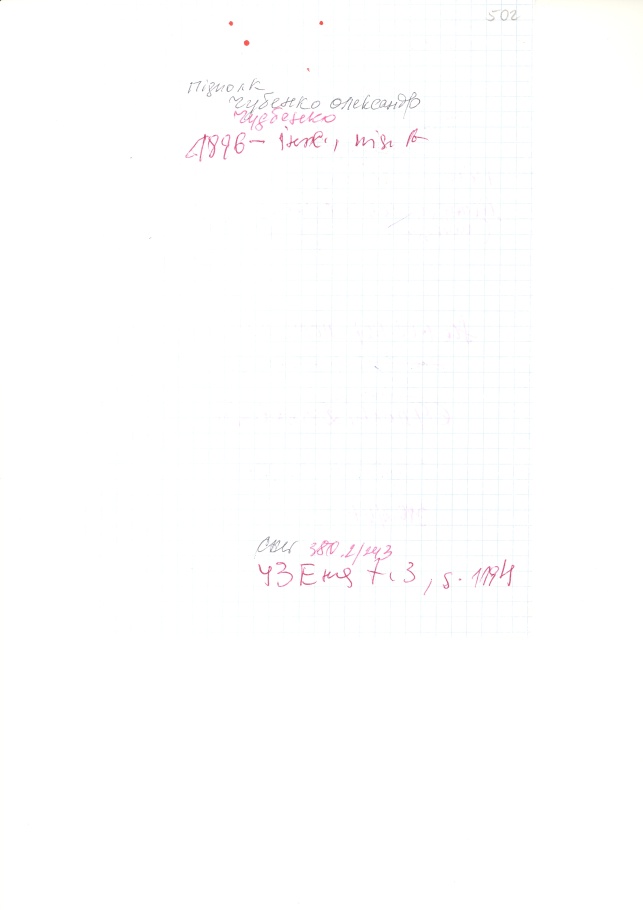 502
підполк
Чубенко Олександр
Чубенко
1896 – інж., підп
ЧЗ Енц т. 3, s. 1194